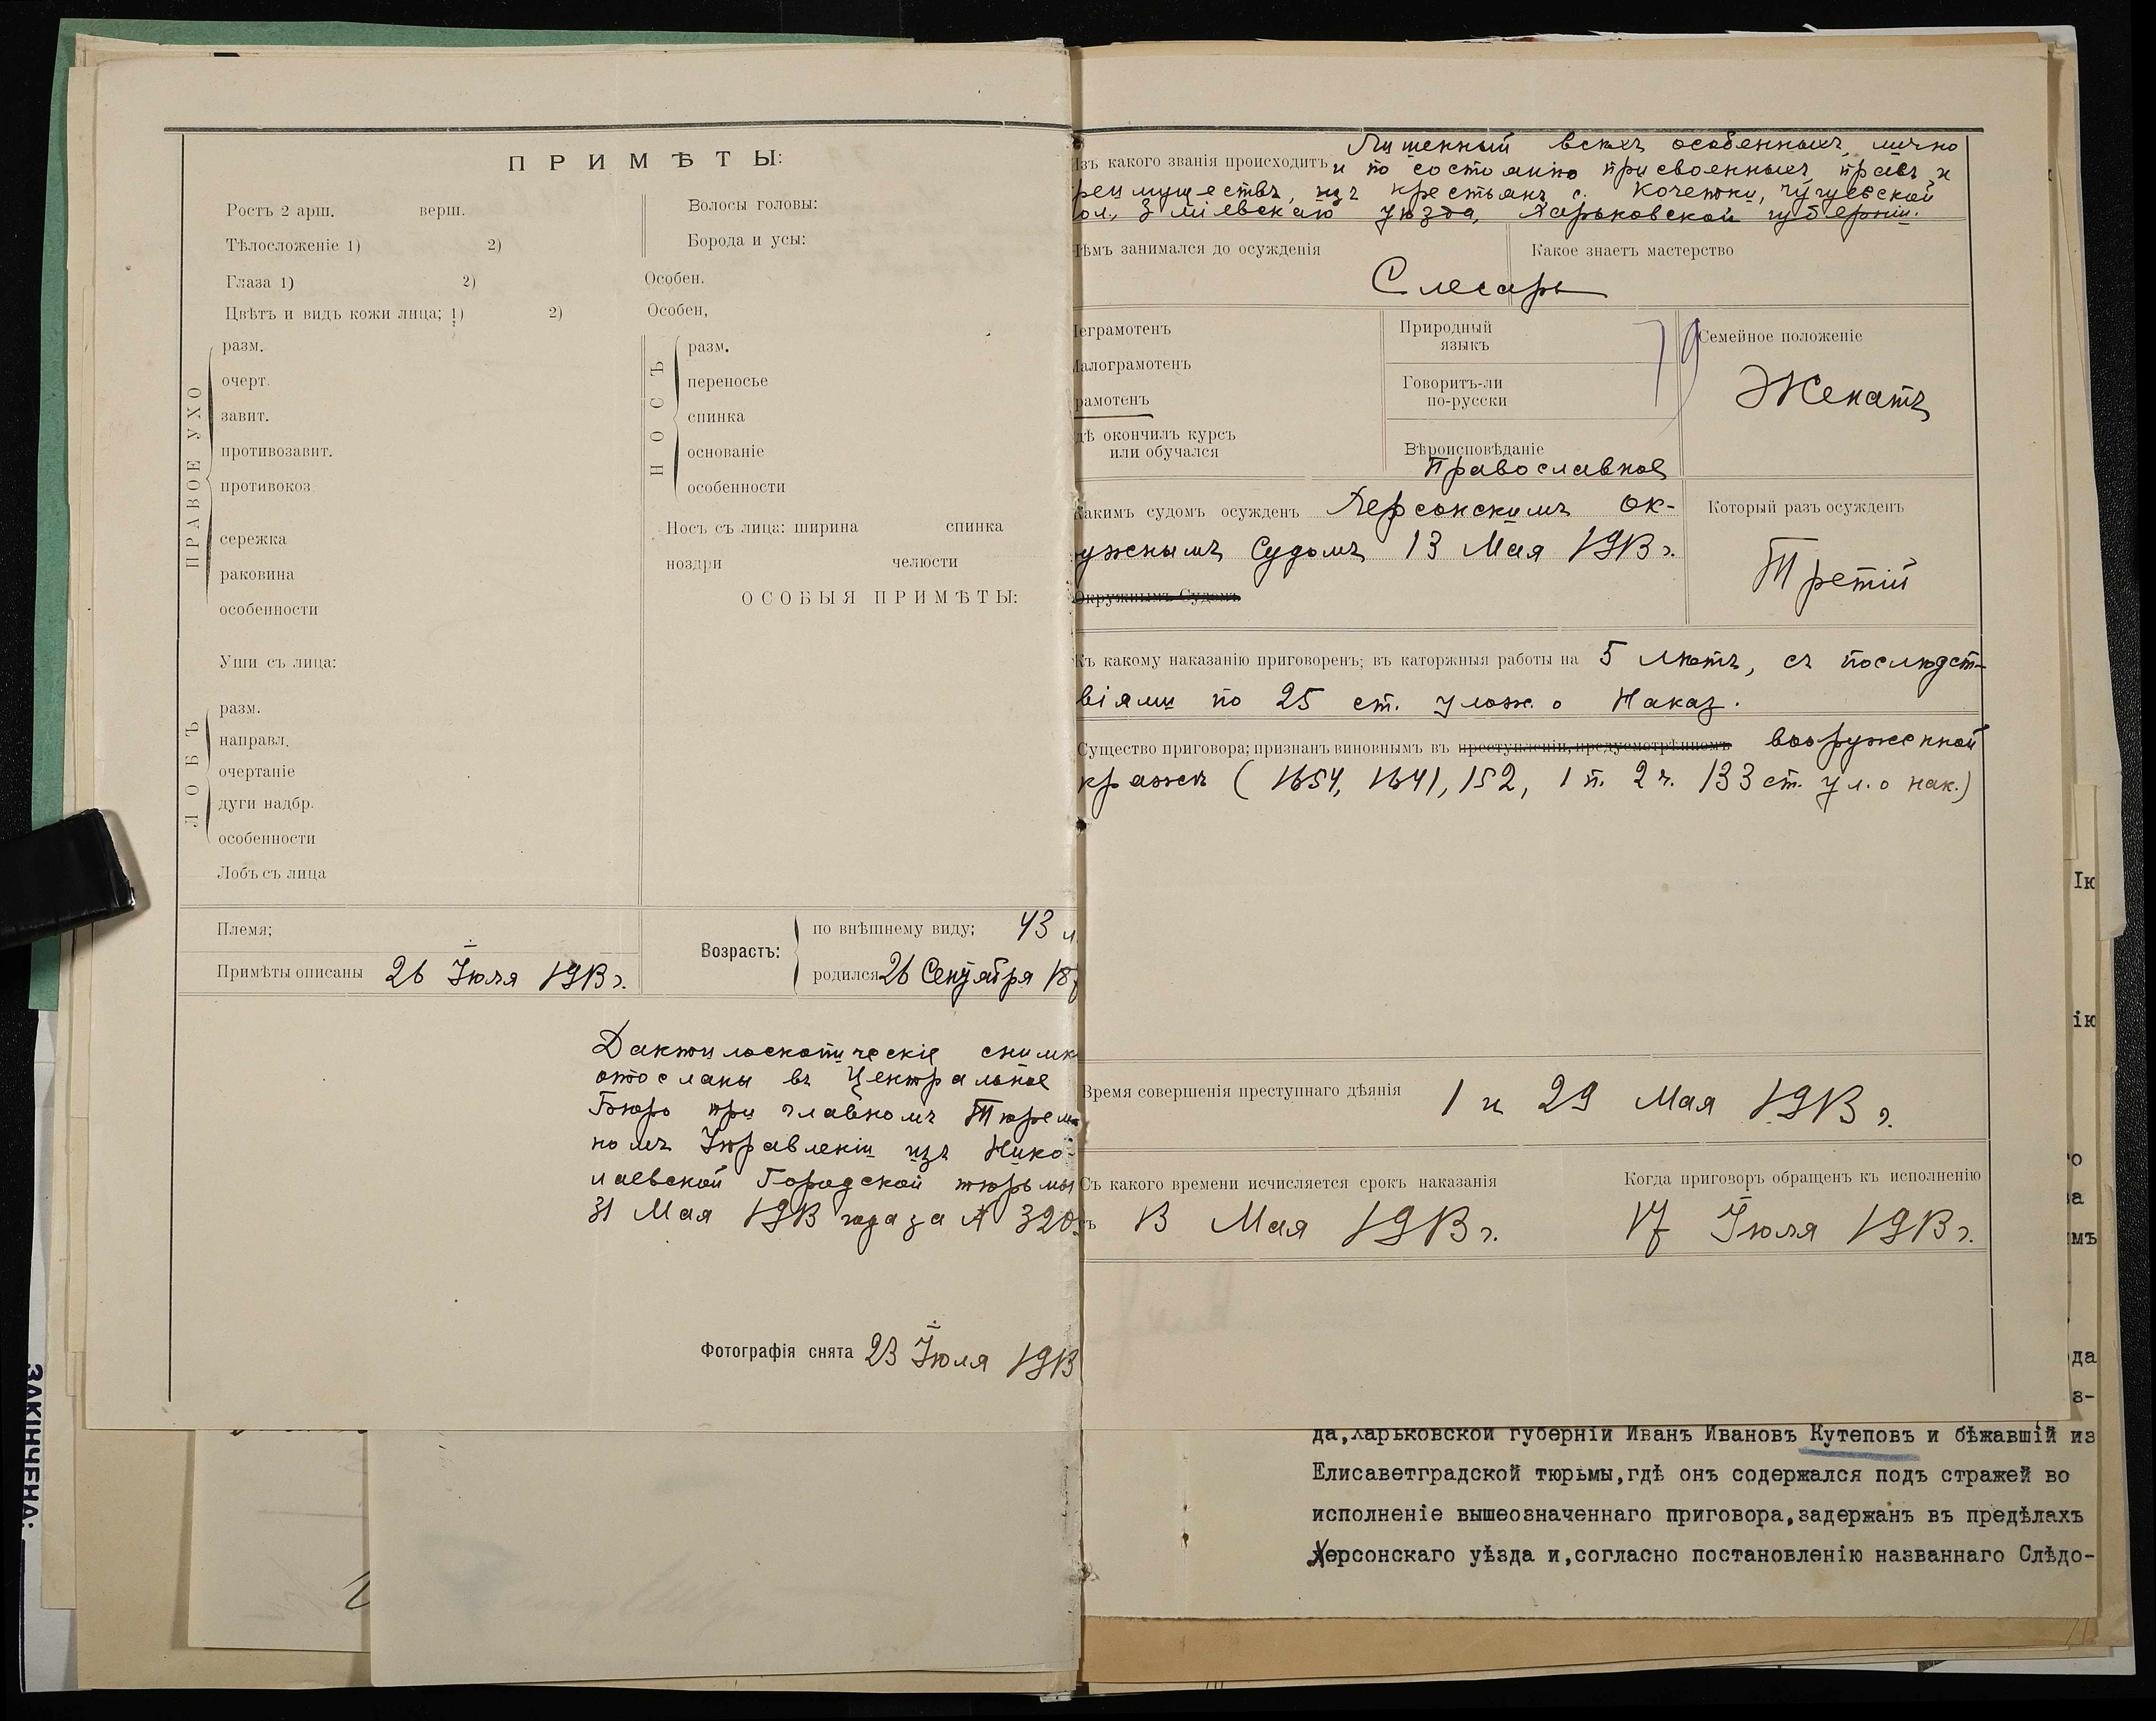 ПРИМѢТЫ:
Ростъ 2 арш. верш.
Тѣлосложеніе 1) 2)
Глаза 1) 2)
Цвѣтъ и видъ кожи лица; 1) 2)
Волосы головы:
Борода и усы:
Особен.
Особен,
ПРАВОЕ УХО
разм.
очерт.
завит.
противозавит.
противокоз
сережка
раковина
особенности
НОСЪ
разм.
переносье
спинка
основаніе
особенности
Носъ съ лица: ширина спинка
ноздри челюсти
ОСОБЫЯ ПРИМѢТЫ:
Уши съ лица:
ЛОБЪ
разм.
направл.
очертаніе
дуги надбр.
особенности
Лобъ съ лица
Племя;
Примѣты описаны 26 Іюля 1913 г.
Возрастъ:
по внѣшнему виду; 43 л
родился 26 Сентября 18
Дактилоскопическіе снимк
отосланы въ Центральное
Бюро при главномъ Тюрем
номъ Управленіи изъ Нико-
лаевской Городской тюрьмы
31 Мая 1913 года за № 320
Фотографія снята 23 Іюля 1913
Изъ какого званія происходитъ Лишенный всѣхъ особенныхъ, лично
и по состоянію присвоенныхъ правъ и
реимуществъ, изъ крестьянъ с. Кочетки, Чугуевской
ол., Зміевскаго уѣзда, Харьковской губерніи.
Чѣмъ занимался до осужденія Какое знаетъ мастерство
Слесарь
Неграмотенъ
Малограмотенъ
рамотенъ
дѣ окончилъ курсъ
или обучался
Природный
языкъ
Говоритъ-ли
по-русски
Вѣроисповѣданіе
Православное
79
Семейное положеніе
Женатъ
Какимъ судомъ осужденъ Херсонскимъ Ок-
ужнымъ Судомъ 13 Мая 1913 г.
Окружнымъ Судомъ
Который разъ осужденъ
Третій
Къ какому наказанію приговоренъ; въ каторжныя работы на 5 лѣтъ, съ послѣдст-
віями по 25 ст. улож. о Наказ.
Существо приговора; признанъ виновнымъ въ преступленіи, предусмотрѣнномъ вооруженной
кражѣ (1654, 1641, 152, 1 п. 2 ч. 133 ст. ул. о нак.)
Время совершенія преступнаго дѣянія 1 и 29 Мая 1913 г.
Съ какого времени исчисляется срокъ наказанія
ъ 13 Мая 1913 г.
Когда приговоръ обращенъ къ исполненію
17 Іюля 1913 г.
да, Харьковской губерніи Иванъ Ивановъ Кутеповъ и бѣжавшій из
Елисаветградской тюрьмы, гдѣ онъ содержался подъ стражей во
исполненіе вышеозначеннаго приговора, задержанъ въ предѣлахъ
Херсонскаго уѣзда и, согласно постановленію названнаго Слѣдо-
Ію
ію
о
а
мъ
да
з-
ЗАКІНЧЕНА: